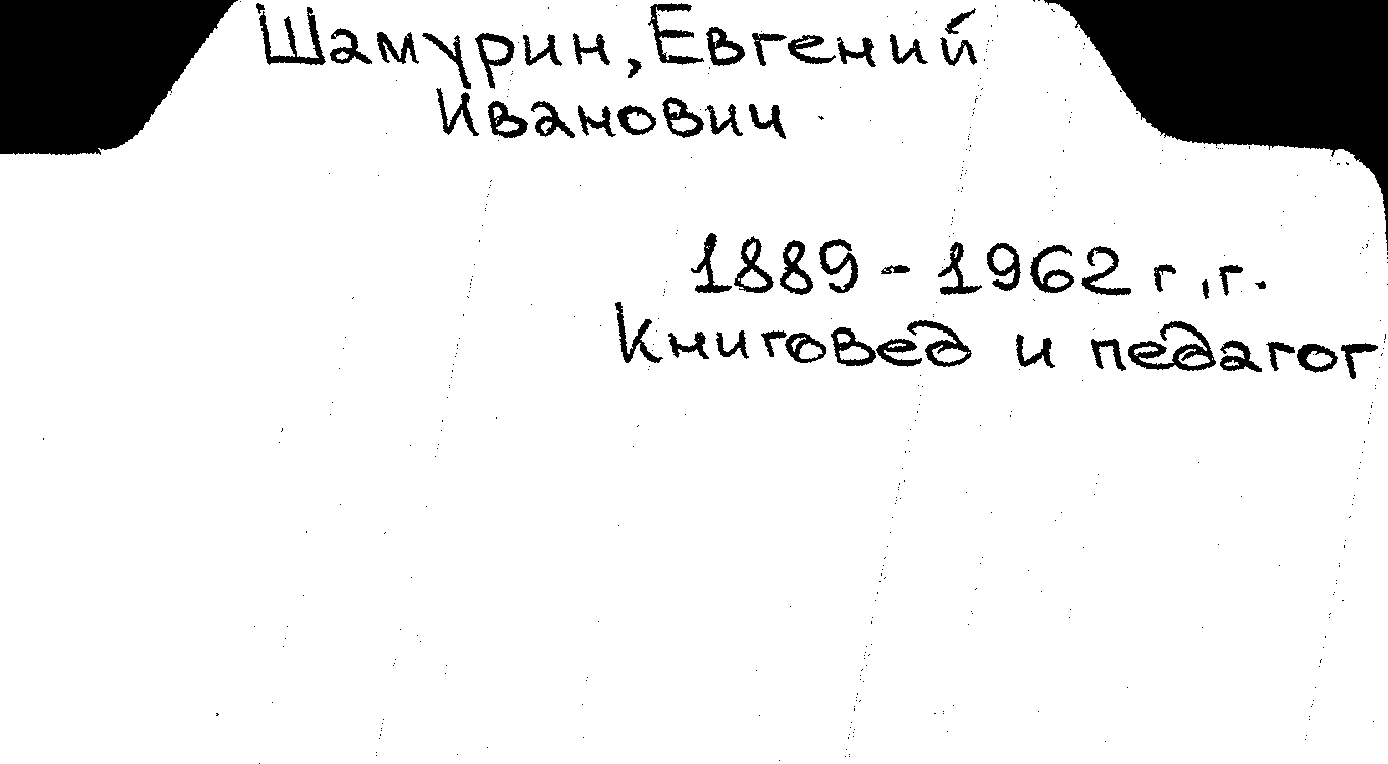 Шамурин, Евгений
Иванович
1889 - 1962 г.г.
Книговед и педагог